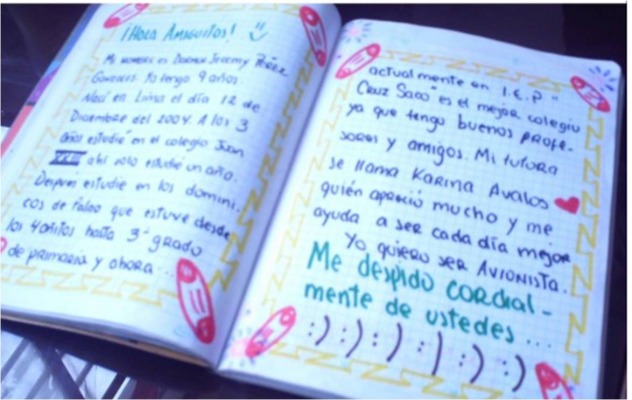 ¡Hola Amiguitos! :)
Mi nombre es Darmer Jeremy Pérez
Gonzales. Yo tengo 9 años.
Nací en Lima el día 12 de
Diciembre del 2004. A los 3
años estudié en el colegio Juan
XXIII ahí solo estudié un año.
Después estudie en los domini-
cos de Palao que estuve desde
los 4 añitos hasta 3º grado
de primaria y ahora...
actualmente en I.E.P "
Cruz Saco" es el mejor colegio
ya que tengo buenos profe-
sores y amigos. Mi tutora
se llama Karina Avalos
quién aprecio mucho y me
ayuda a ser cada día mejor
Yo quiero ser Avionista.
Me despido cordial-
mente de ustedes ...
:) :) :) :| :) :)